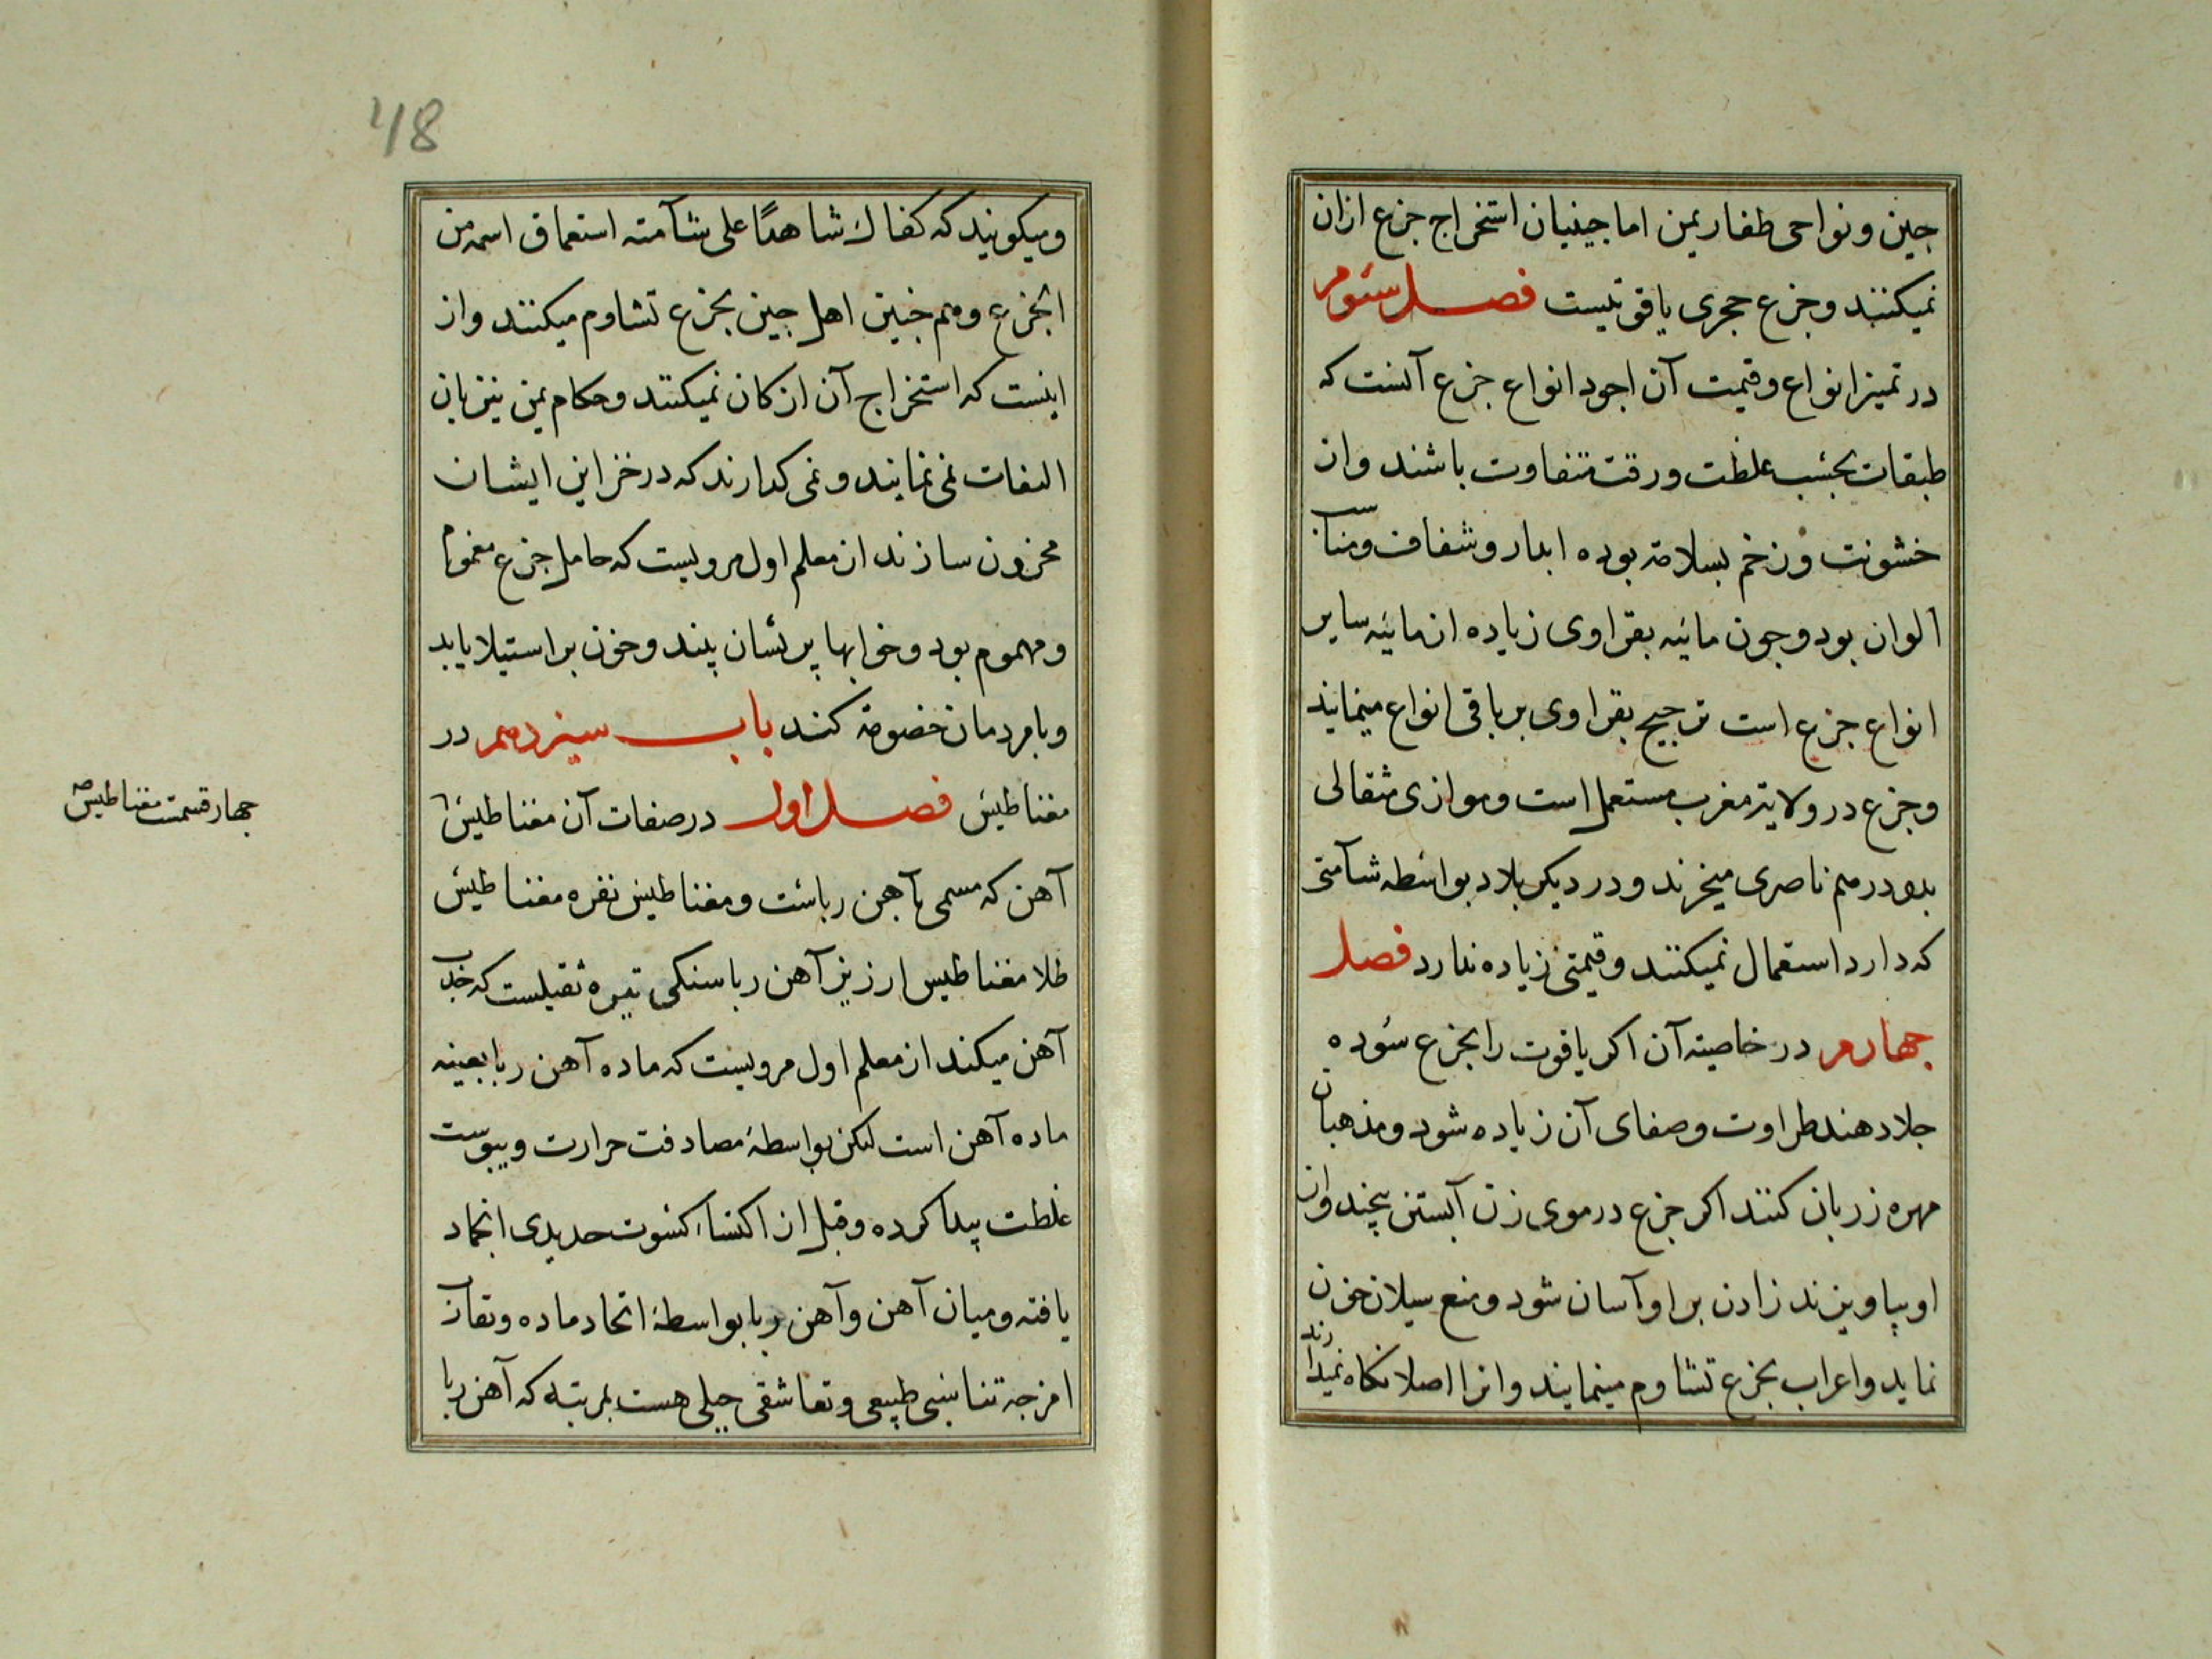 جین و نواحی ظفار یمن اما جینیان استخراج جزع ازان
نمیکنند و جزع حجری یاقوتیست فصل سئوم
در تمیز انواع و قیمت آن اجود انواع جزع آنست که
طبقات بحسب غلظت و رقت متفاوت باشند و ان
خشونت و زخم بسلامة بوده ابدار و شفاف و
الوان بود و جون مائیه بقراوی زیاده از مائیه سایر
انواع جزع است ترجیح بقراوی بر باقی انواع مینمایند
و جزع در ولایة مغرب مستعمل است و موازی مثقالی
بدو درهم ناصری میخرند و در دیکر بلاد بواسطه شآمتی
که دارد استعمال نمیکنند و قیمتی زیاده ندارد فصل
جهارم در خاصیته آن اکر یاقوت را بجزع سوده
جلا دهند طراوت و صفای آن زیاده شود و مذهبان
مهره زر بان کنند اکر جزع در موی زن آبستن پیچند و ان
او بیاویزند زادن بر او آسان شود و منع سیلان خون
نماید و اعراب بجزع تشاوم مینمایند و انرا اصلا نکاه نمیدارند
48
و میکویند که کفاك شاهدًا علی شآمته اسمه من
الجزع و هم جنین اهل جین بجزع تشاوم میکنند و از
اینست که استخراج آن از کان نمیکنند و حکام یمن نیز بان
التفات نمی نمایند و نمی کدارند که در خزاین ایشان
مخزون سازند از معلم اول مرویست که حامل جزع مغموم
و مهموم بود و خوابها پریشان بیند و حزن بر استیلا یابد
و با مردمان خصومة کند باب سیزدهم در
مغناطیس فصل اول در صفات آن مغناطیس
آهن که مسمی بآهن رباست و مغناطیس نقره مغناطیس
طلا مغناطیس ارزیز آهن ربا سنکی تیره ثقیلست که جذب
آهن میکند از معلم اول مرویست که ماده آهن ربا بعینه
ماده آهن است لیکن بواسطهٔ مصادفت حرارت و یبوست
غلظت پیدا کرده و قبل از اکتساء کسوت حدیدی انجماد
یافته و میان آهن و آهن ربا بواسطهٔ اتحاد ماده و تقارن
امزجه تناسبی طبیعی و تعاشقی جبلی هست بمرتبه که آهن ربا
جهار قسمت مغناطیس